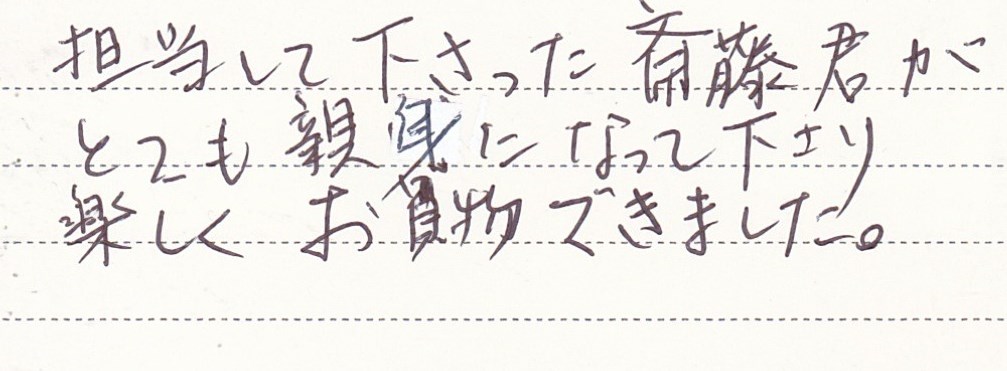 担当して下さった斎藤君が
とても親身になって下さり
楽しくお買物できました。